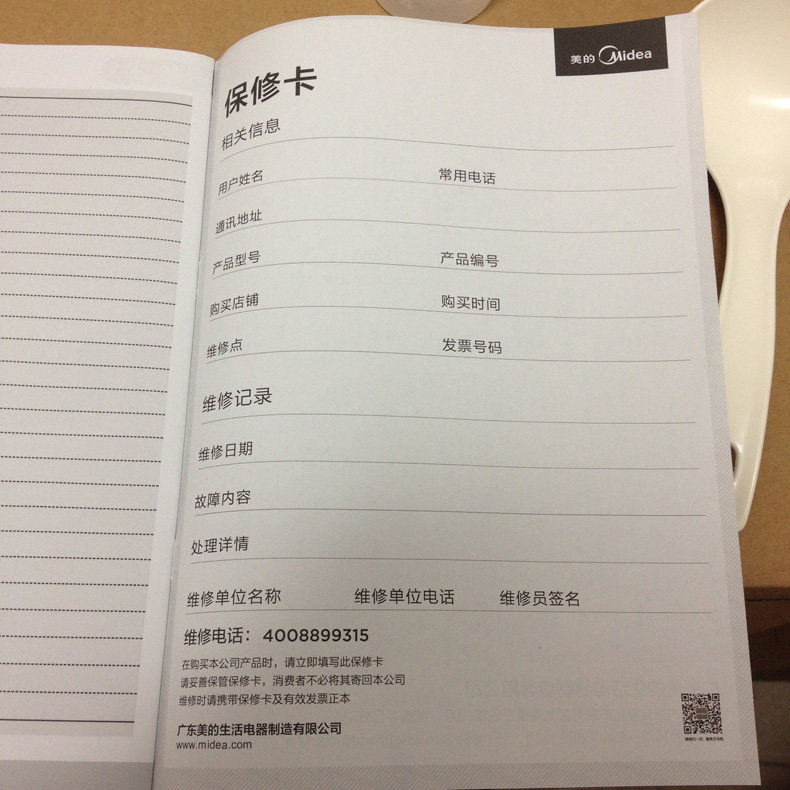 美的 Midea
保修卡
相关信息
用户姓名 常用电话
通讯地址
产品型号 产品编号
购买店铺 购买时间
维修点 发票号码
维修记录
维修日期
故障内容
处理详情
维修单位名称 维修单位电话 维修员签名
维修电话： 4008899315
在购买本公司产品时，请立即填写此保修卡
请妥善保管保修卡，消费者不必将其寄回本公司
维修时请携带保修卡及有效发票正本
广东美的生活电器制造有限公司
www.midea.com